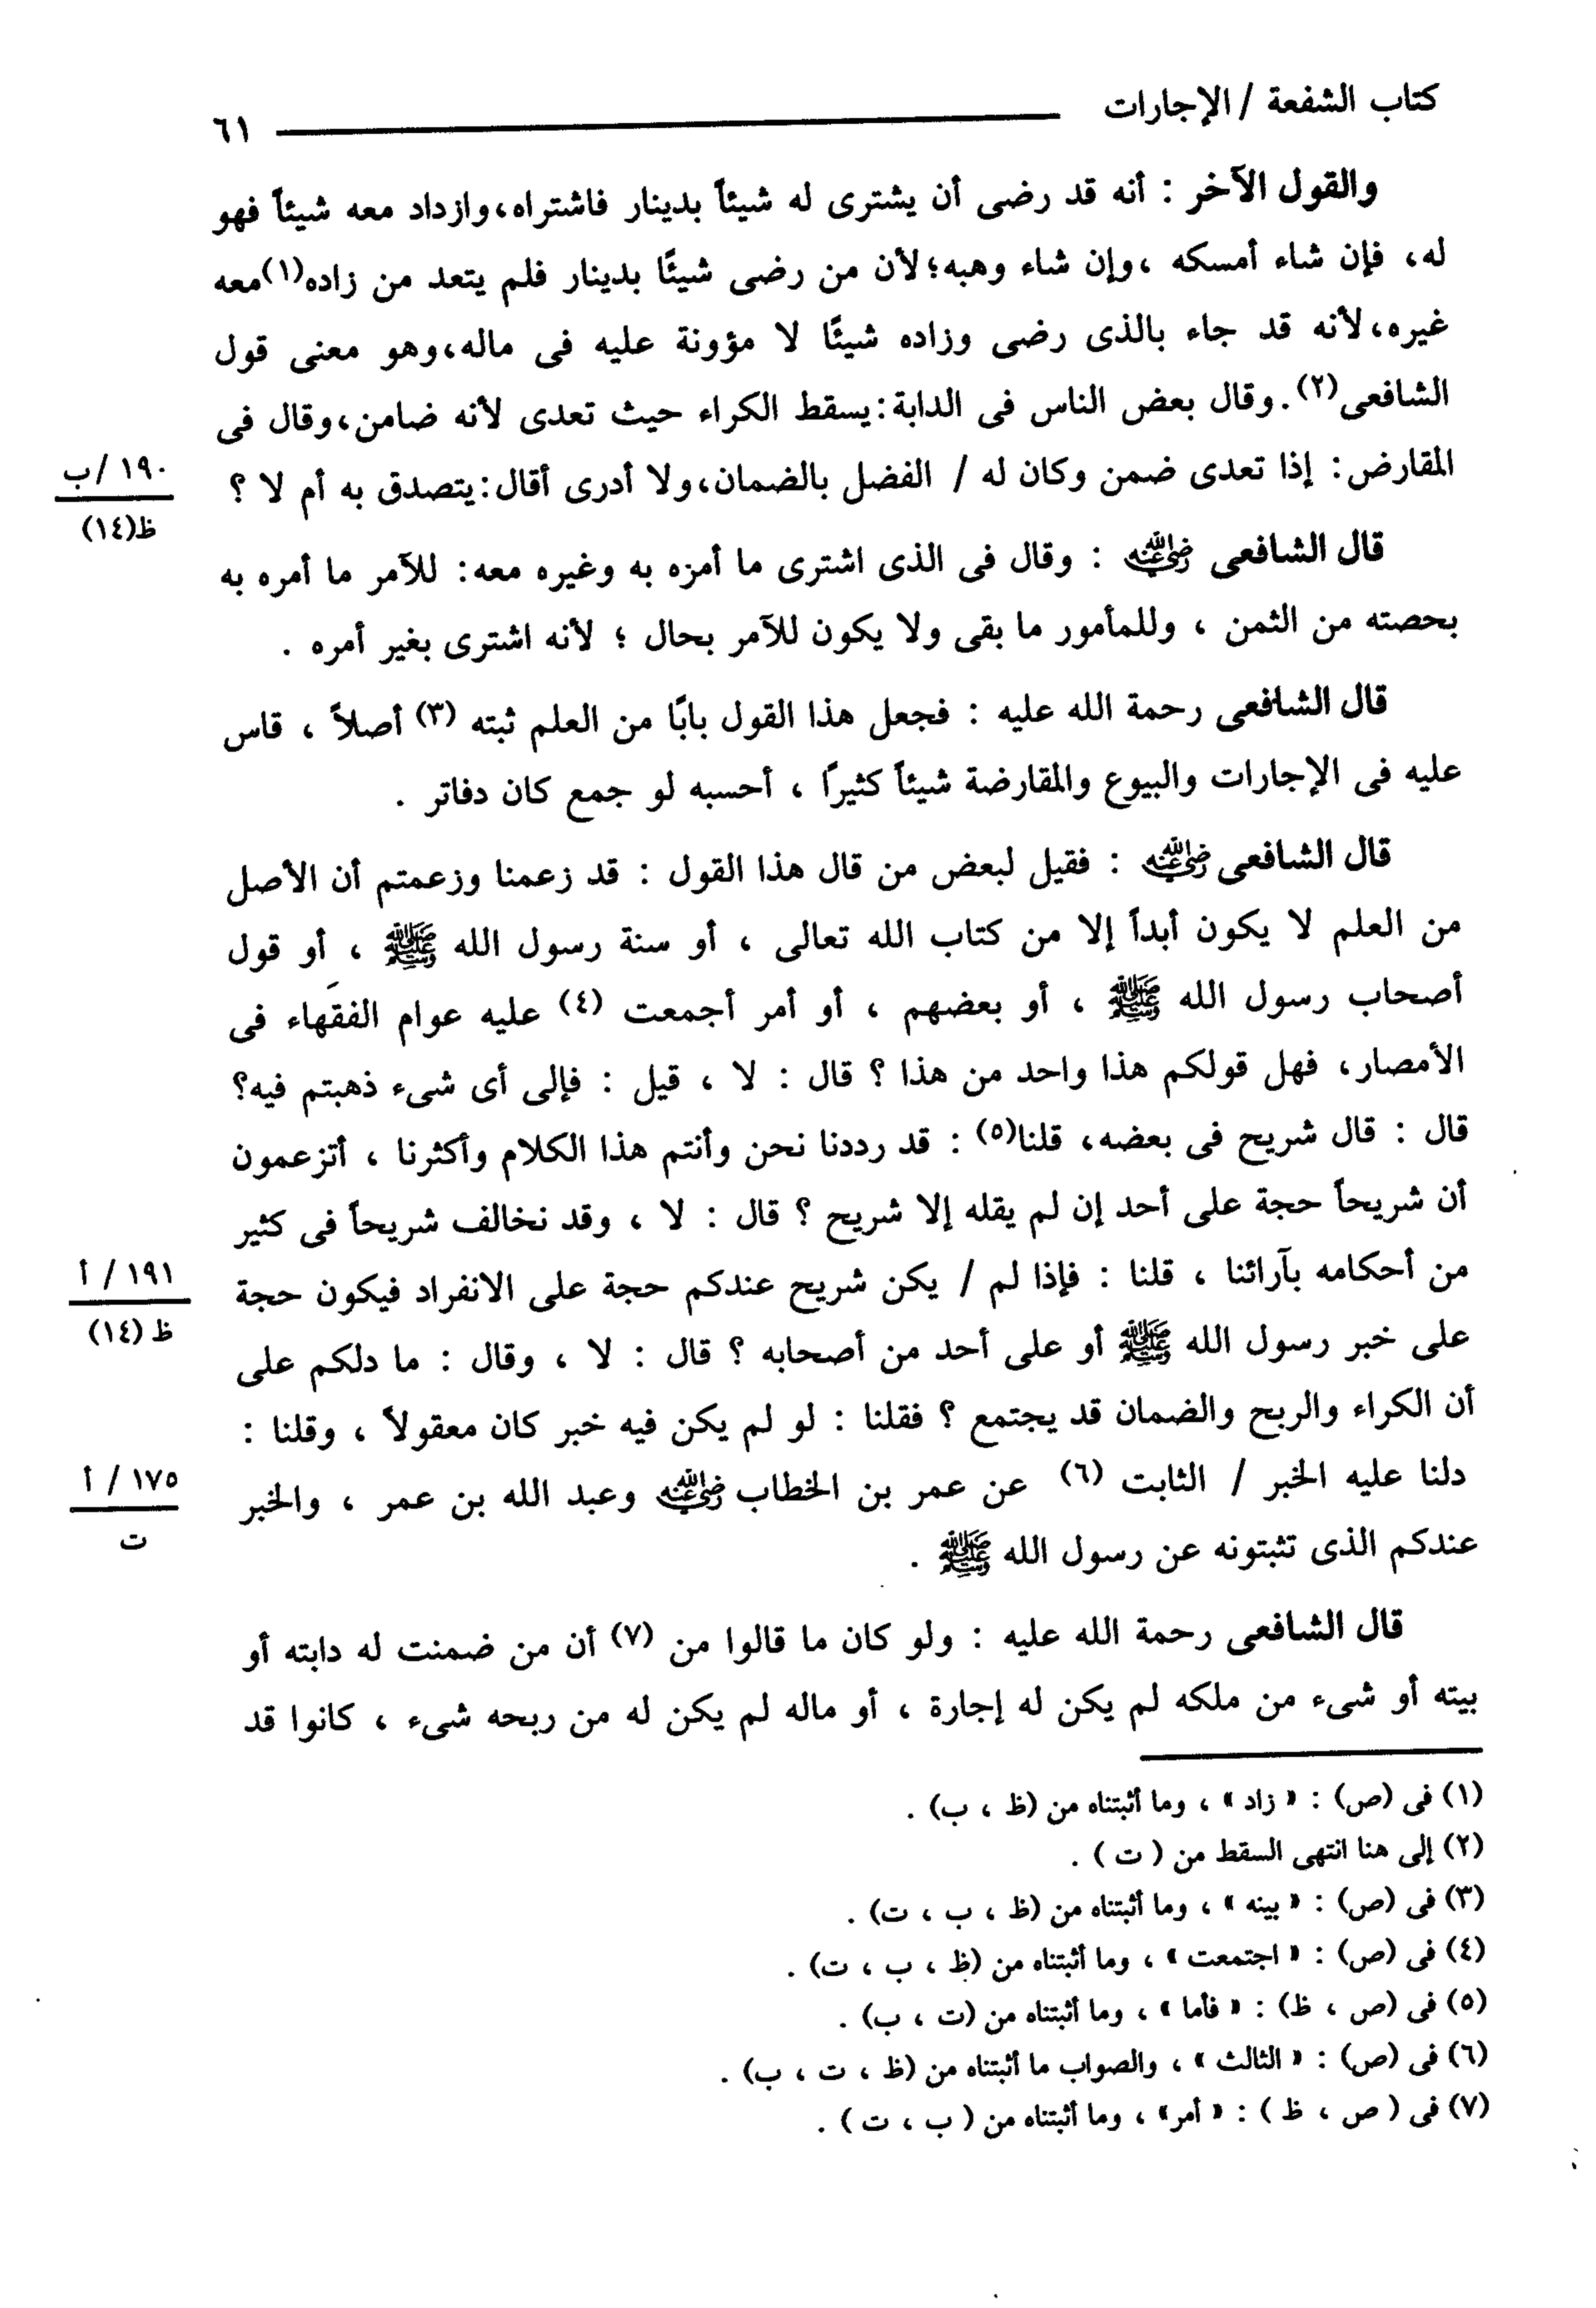 كتاب الشفعة / الإجارات ٦١
والقول الآخر : أنه قد رضى أن يشترى له شيئاً بدينار فاشتراه،وازداد معه شيئاً فهو
له، فإن شاء أمسكه ،وإن شاء وهبه؛لأن من رضى شيئًا بدينار فلم يتعد من زاده(١)معه
غيره،لأنه قد جاء بالذى رضى وزاده شيئًا لا مؤونة عليه فى ماله،وهو معنى قول
الشافعى(٢).وقال بعض الناس فى الدابة:يسقط الكراء حيث تعدى لأنه ضامن،وقال فى
المقارض: إذا تعدى ضمن وكان له / الفضل بالضمان،ولا أدرى أقال:يتصدق به أم لا ؟
١٩٠ /ب
ظ(١٤)
قال الشافعى رضي الله عنه : وقال فى الذى اشترى ما أمره به وغيره معه: للآمر ما أمره به
بحصته من الثمن ، وللمأمور ما بقى ولا يكون للآمر بحال ؛ لأنه اشترى بغير أمره .
قال الشافعى رحمة الله عليه : فجعل هذا القول بابًا من العلم ثبته (٣) أصلاً ، قاس
عليه فى الإجارات والبيوع والمقارضة شيئاً كثيرًا ، أحسبه لو جمع كان دفاتر .
قال الشافعى رضي الله عنه : فقيل لبعض من قال هذا القول : قد زعمنا وزعمتم أن الأصل
من العلم لا يكون أبداً إلا من كتاب الله تعالى ، أو سنة رسول الله ﷺ ، أو قول
أصحاب رسول الله ﷺ ، أو بعضهم ، أو أمر أجمعت (٤) عليه عوام الفقهاء فى
الأمصار، فهل قولكم هذا واحد من هذا ؟ قال : لا ، قيل : فإلى أى شىء ذهبتم فيه؟
قال : قال شريح فى بعضه، قلنا(٥) : قد رددنا نحن وأنتم هذا الكلام وأكثرنا ، أتزعمون
أن شريحاً حجة على أحد إن لم يقله إلا شريح ؟ قال : لا ، وقد نخالف شريحاً فى كثير
من أحكامه بآرائنا ، قلنا : فإذا لم / يكن شريح عندكم حجة على الانفراد فيكون حجة
١٩١ / أ
ظ (١٤)
على خبر رسول الله ﷺ أو على أحد من أصحابه ؟ قال : لا ، وقال : ما دلكم على
أن الكراء والربح والضمان قد يجتمع ؟ فقلنا : لو لم يكن فيه خبر كان معقولاً ، وقلنا :
دلنا عليه الخبر / الثابت (٦) عن عمر بن الخطاب رضي الله عنه وعبد الله بن عمر ، والخبر
١٧٥ / أ
ت
عندكم الذى تثبتونه عن رسول الله ﷺ .
قال الشافعى رحمة الله عليه : ولو كان ما قالوا من (٧) أن من ضمنت له دابته أو
بيته أو شىء من ملكه لم يكن له إجارة ، أو ماله لم يكن له من ربحه شىء ، كانوا قد
(١) فى (ص) : « زاد » ، وما أثبتناه من (ظ ، ب) .
(٢) إلى هنا انتهى السقط من ( ت ) .
(٣) فى (ص) : « بينه » ، وما أثبتناه من (ظ ، ب ، ت) .
(٤) فى (ص) : « اجتمعت » ، وما أثبتناه من (ظ ، ب ، ت) .
(٥) فى (ص ، ظ) : « فأما » ، وما أثبتناه من (ت ، ب) .
(٦) فى (ص) : « الثالث » ، والصواب ما أثبتناه من (ظ ، ت ، ب) .
(٧) فى ( ص ، ظ ) : « أمر» ، وما أثبتناه من ( ب ، ت ) .